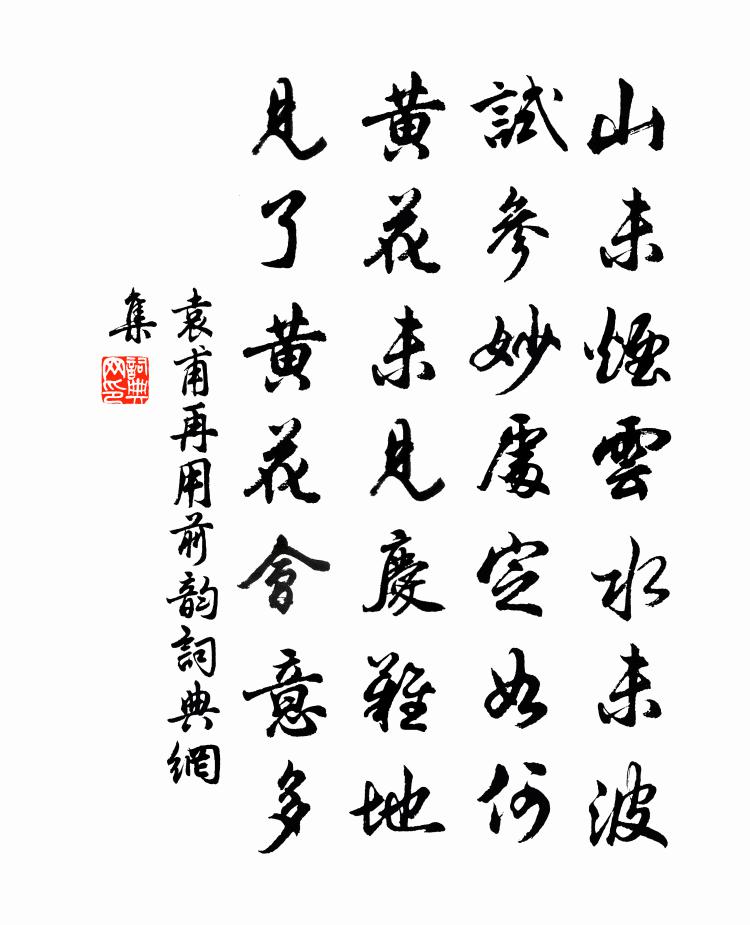 山未煙雲水未波
試參妙處定如何
黃花未見慶難地
見了黃花會意多
袁甫再用前韵詞典網
集
詞典网印